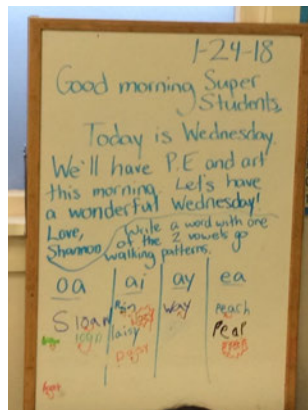 1-24-18
Good morning Super
Students,
Today is Wednesday.
We'll have P.E and art
this morning. Let's have
a wonderful Wednesday!
Love,
Shannon
Write a word with one
of the 2 vowels go
walking patterns.
oa ai ay ea
Sloan way peach
Pear